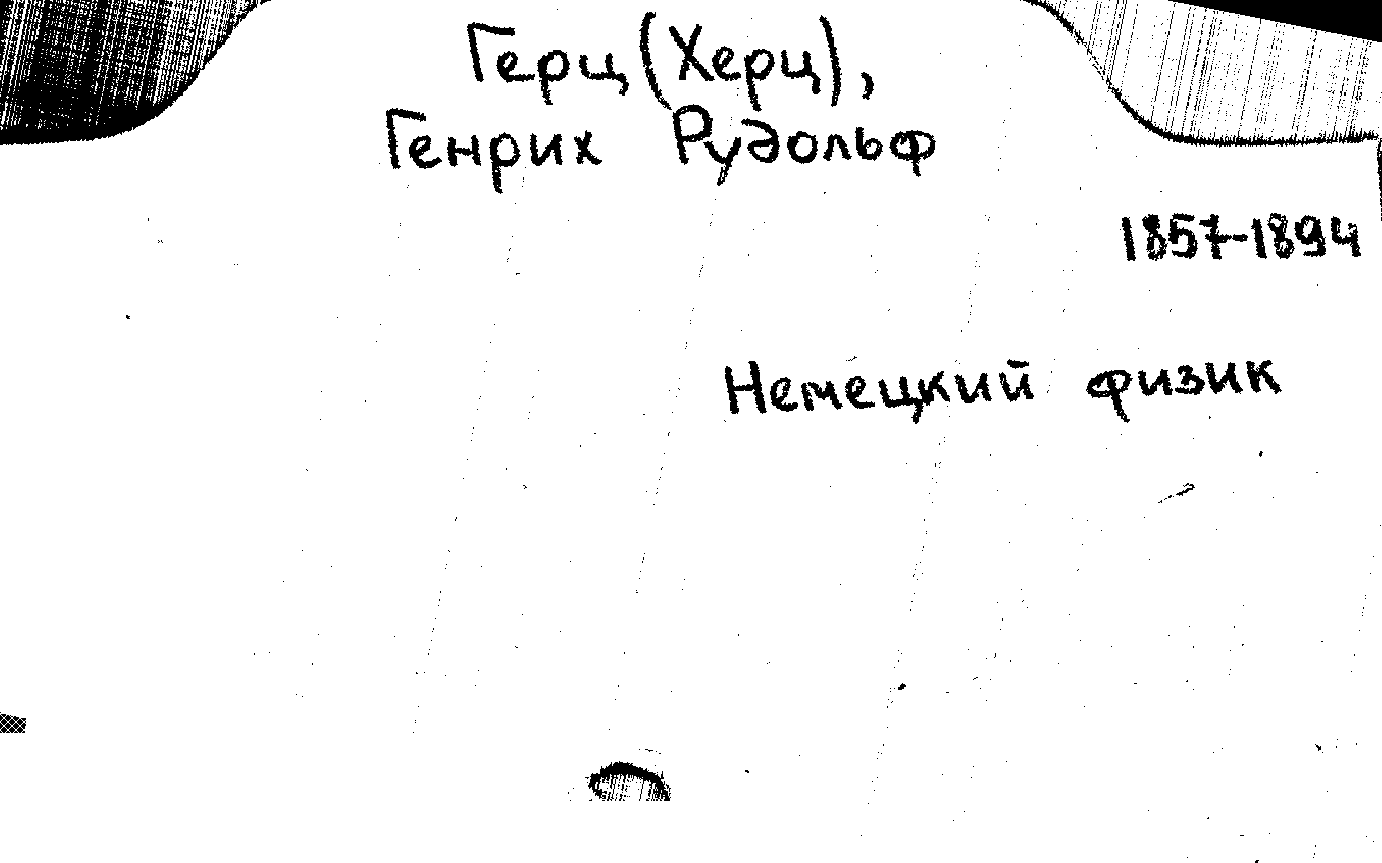 Герц (Херц),
Генрих Рудольф
1857-1894
Немецкий физик